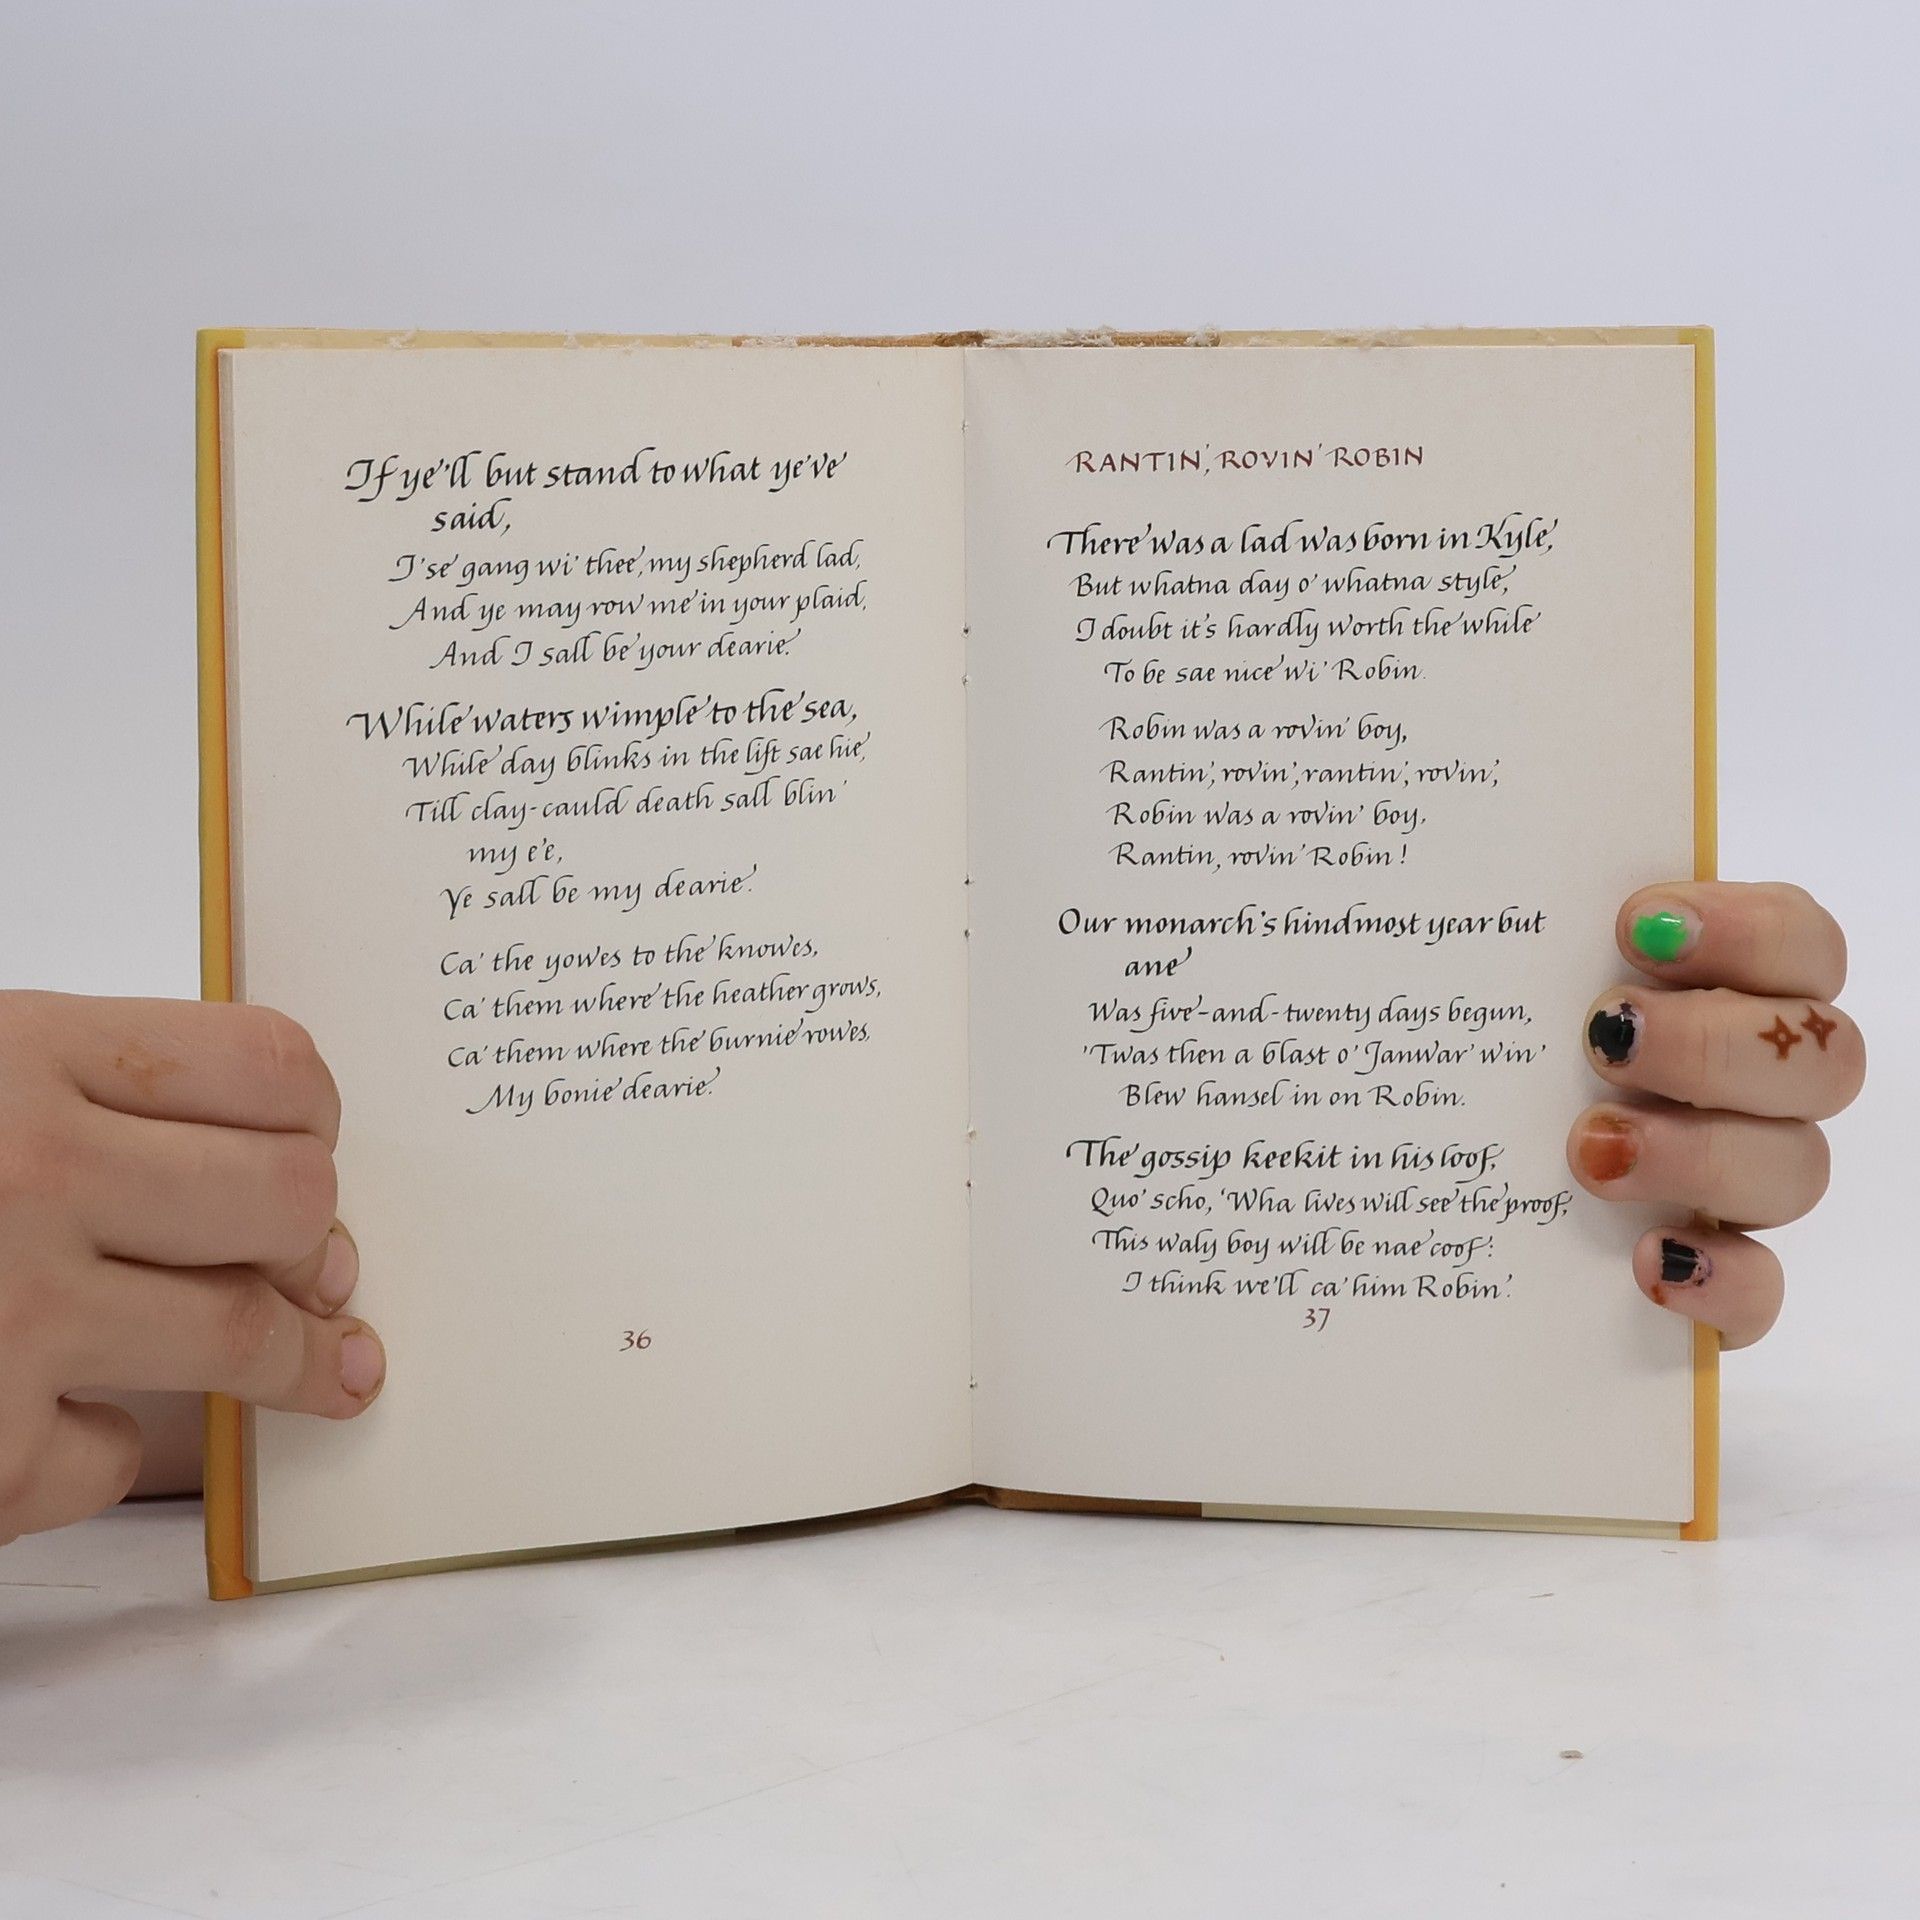 If ye'll but stand to what ye've
said,
I'se gang wi' thee, my shepherd lad,
And ye may row me in your plaid,
And I sall be your dearie.
While waters wimple to the sea,
While day blinks in the lift sae hie,
Till clay-cauld death sall blin'
my e'e,
Ye sall be my dearie.
Ca' the yowes to the knowes,
Ca' them where the heather grows,
Ca' them where the burnie rowes,
My bonie dearie.
36
RANTIN', ROVIN' ROBIN
There was a lad was born in Kyle,
But whatna day o' whatna style,
I doubt it's hardly worth the while
To be sae nice wi' Robin.
Robin was a rovin' boy,
Rantin', rovin', rantin', rovin',
Robin was a rovin' boy,
Rantin, rovin' Robin!
Our monarch's hindmost year but
ane
Was five-and-twenty days begun,
'Twas then a blast o' Janwar' win'
Blew hansel in on Robin.
The gossip keekit in his loof,
Quo' scho, 'Wha lives will see the proof,
This waly boy will be nae coof:
I think we'll ca' him Robin'.
37